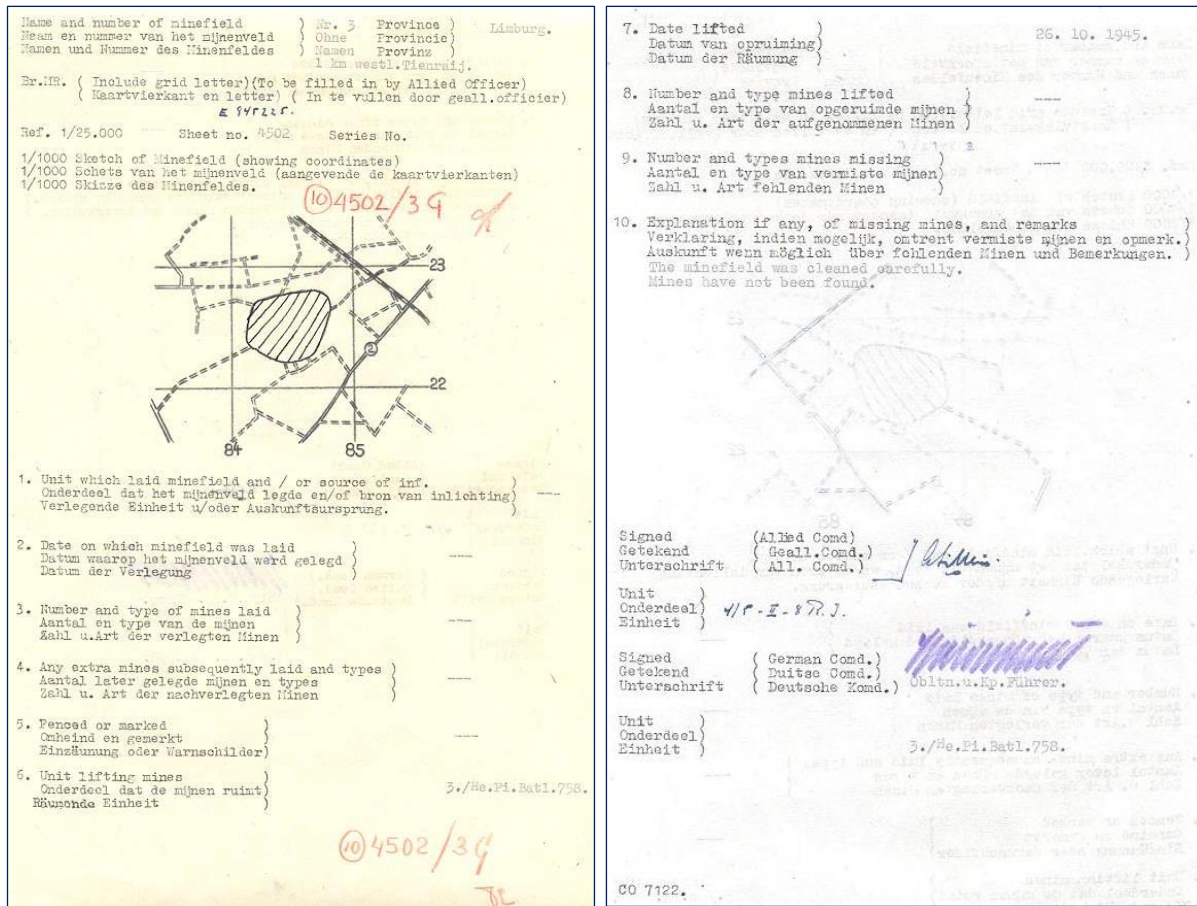 Name and number of minefield ) Nr. 3 Province ) Limburg.
Neam en nummer van het mijnenveld ) Ohne Provincie)
Namen und Nummer des Minenfeldes ) Namen Provinz )
1 km westl.Tienraij.
Br.HR. ( Include grid letter)(To be filled in by Allied Officer)
( Kaartvierkant en letter) ( In te vullen door geall.officier)
E 845225.
Ref. 1/25.000 Sheet no. 4502 Series No.
1/1000 Sketch of Minefield (showing coordinates)
1/1000 Schets van het mijnenveld (aangevende de kaartvierkanten)
1/1000 Skizze des Minenfeldes.
10 4502/3G
23
2
22
84 85
1. Unit which laid minefield and / or source of inf. )
Onderdeel dat het mijnenveld legde en/of bron van inlichting) ----
Verlegende Einheit u/oder Auskunftsursprung. )
2. Date on which minefield was laid )
Datum waarop het mijnenveld werd gelegd ) ----
Datum der Verlegung )
3. Number and type of mines laid )
Aantal en type van de mijnen ) ----
Zahl u.Art der verlegten Minen )
4. Any extra mines subsequently laid and types )
Aantal later gelegde mijnen en types ) ----
Zahl u. Art der nachverlegten Minen )
5. Fenced or marked )
Omheind en gemerkt ) ----
Einzäunung oder Warnschilder)
6. Unit lifting mines )
Onderdeel dat de mijnen ruimt) 3./He.Pi.Batl.758.
Räumende Einheit )
10 4502/3G
7. Date lifted ) 26. 10. 1945.
Datum van opruiming)
Datum der Räumung )
8. Number and type mines lifted )
Aantal en type van opgeruimde mijnen ) ----
Zahl u. Art der aufgenommenen Minen )
9. Number and types mines missing )
Aantal en type van vermiste mijnen) ----
Zahl u. Art fehlenden Minen )
10. Explanation if any, of missing mines, and remarks )
Verklaring, indien mogelijk, omtrent vermiste mijnen en opmerk.)
Auskunft wenn möglich über fehlenden Minen und Bemerkungen. )
The minefield was cleaned carefully.
Mines have not been found.
Signed (Allied Comd)
Getekend ( Geall.Comd.)
Unterschrift ( All. Comd.)
Unit )
Onderdeel) 4/5-II-8 R.I.
Einheit )
Signed ( German Comd.)
Getekend ( Duitse Comd.)
Unterschrift ( Deutsche Komd.) Obltn.u.Kp.Führer.
Unit )
Onderdeel)
Einheit ) 3./He.Pi.Batl.758.
CO 7122.